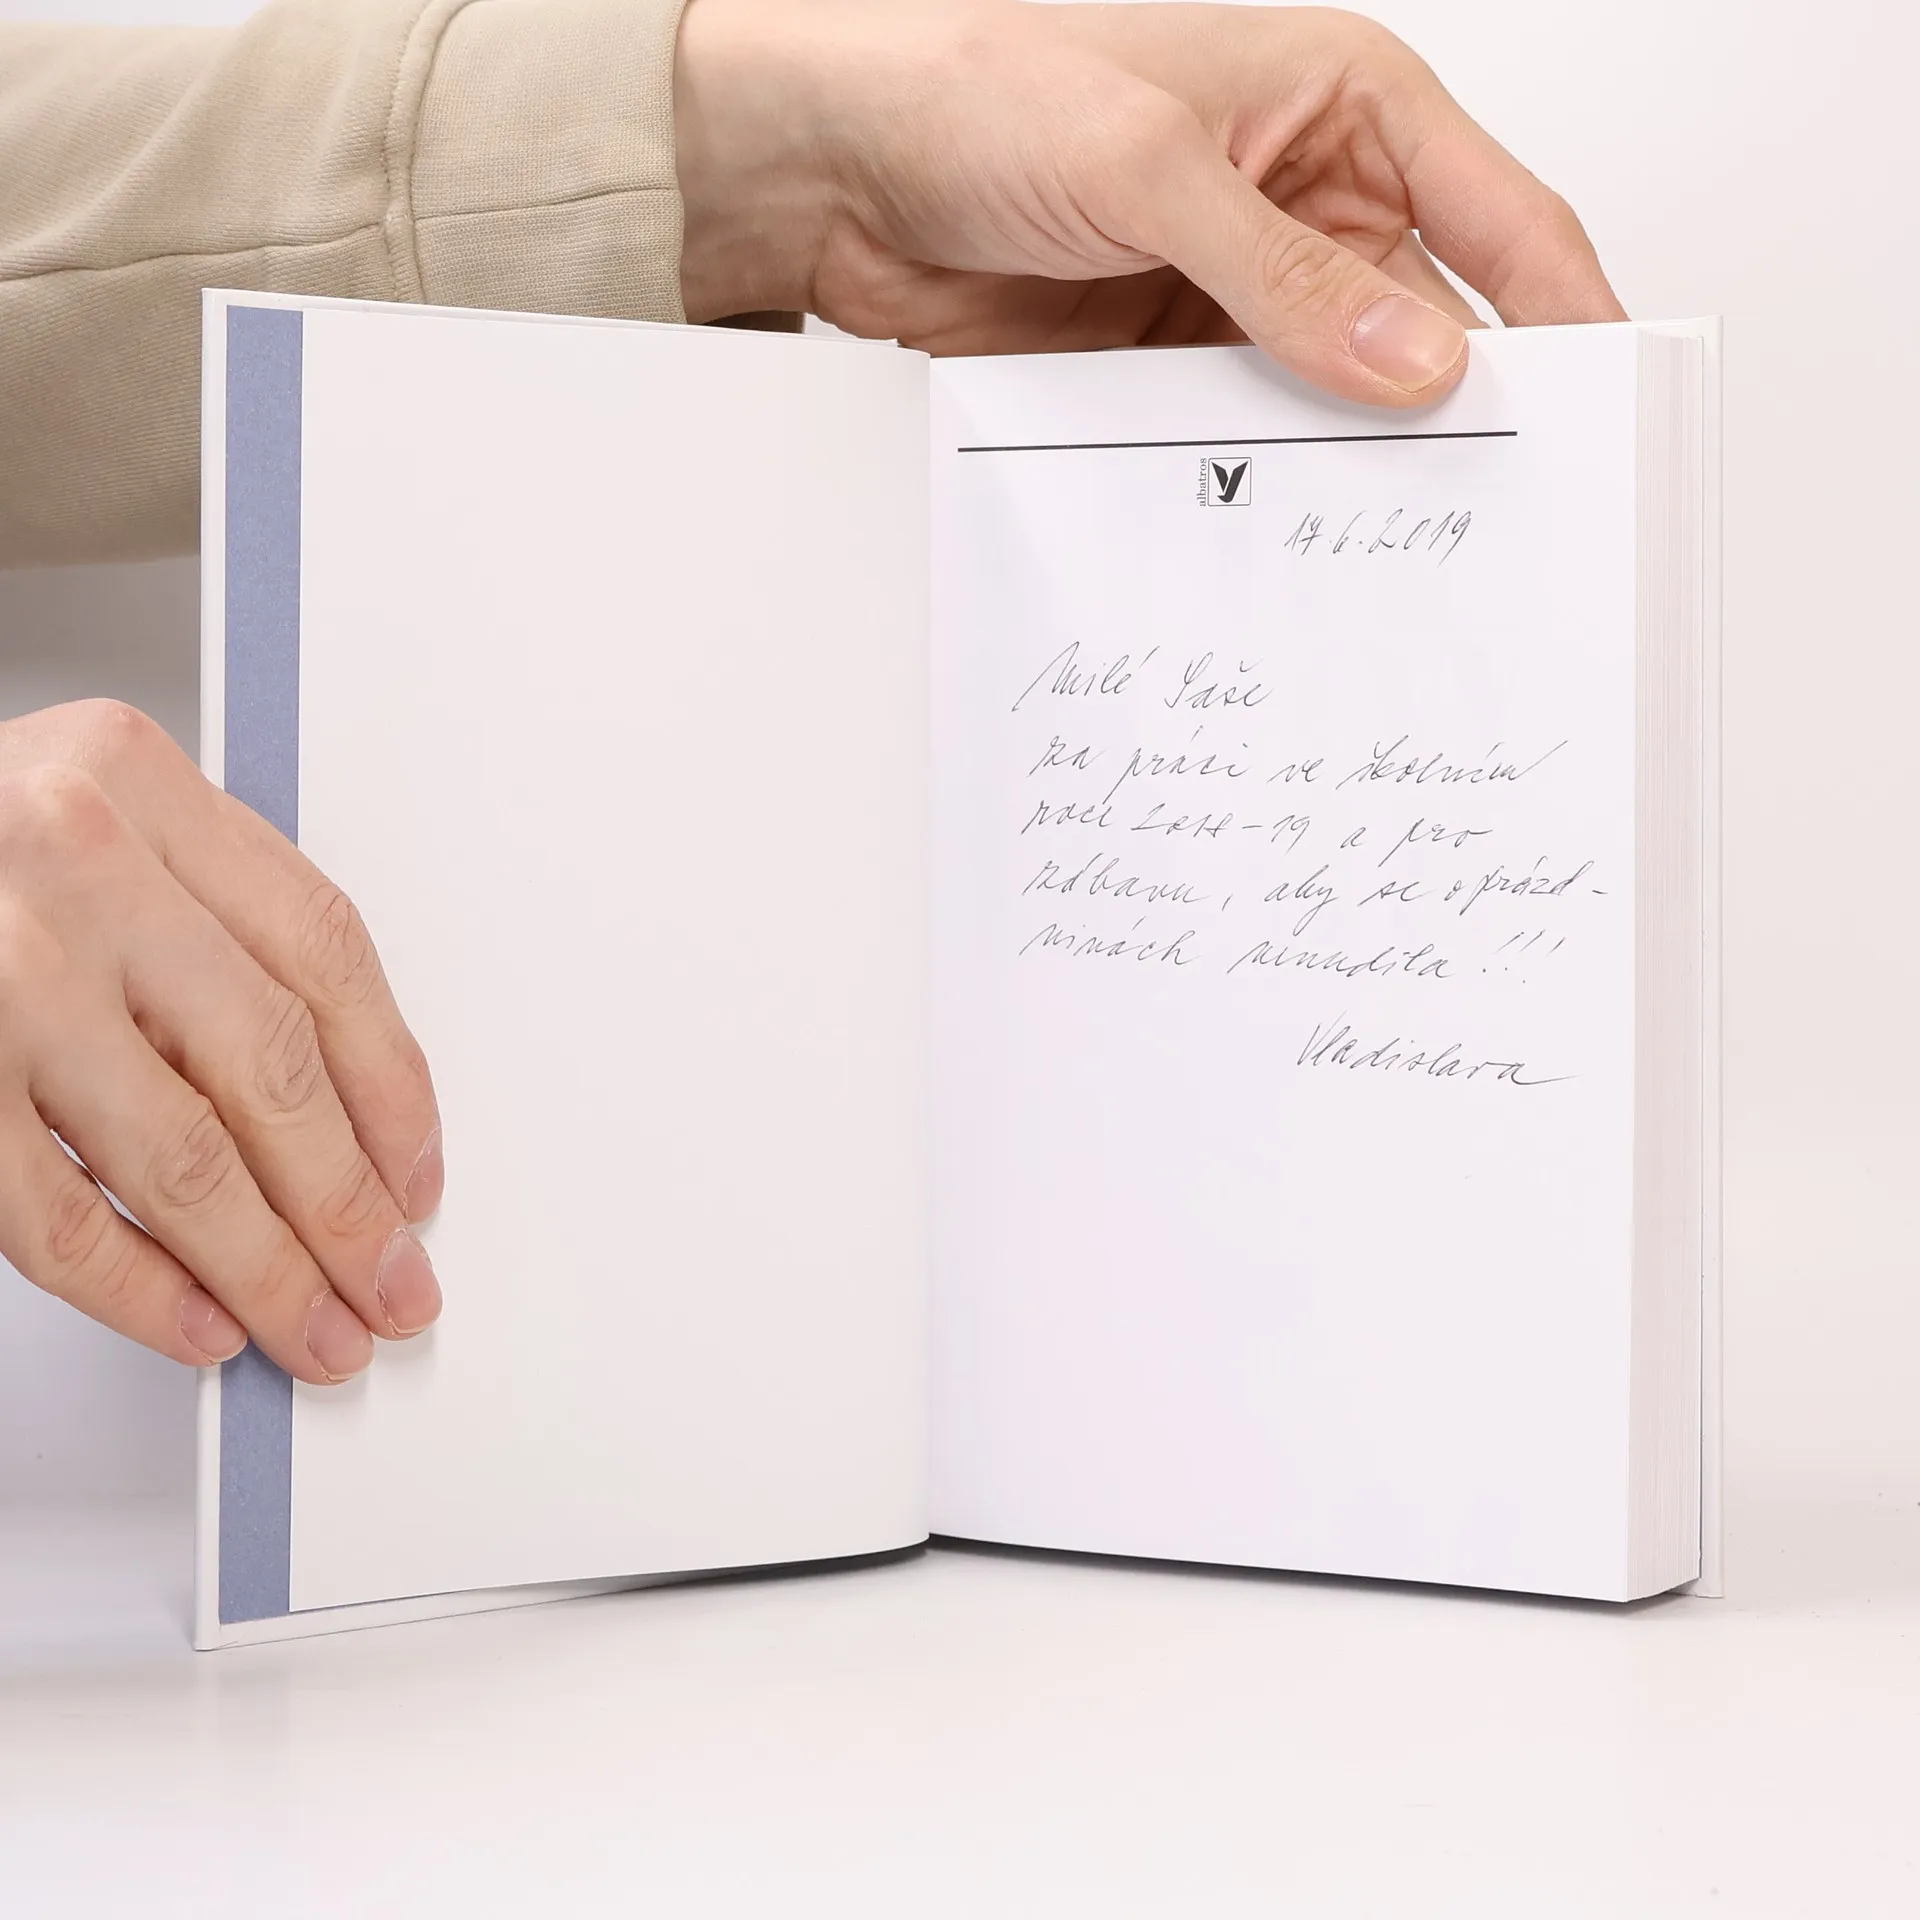 albatros
17.6.2019
Milé Saše
za práci ve školním
roce 2018-19 a pro
zábavu, aby se o prázd-
ninách nenudila!!!
Vladislava